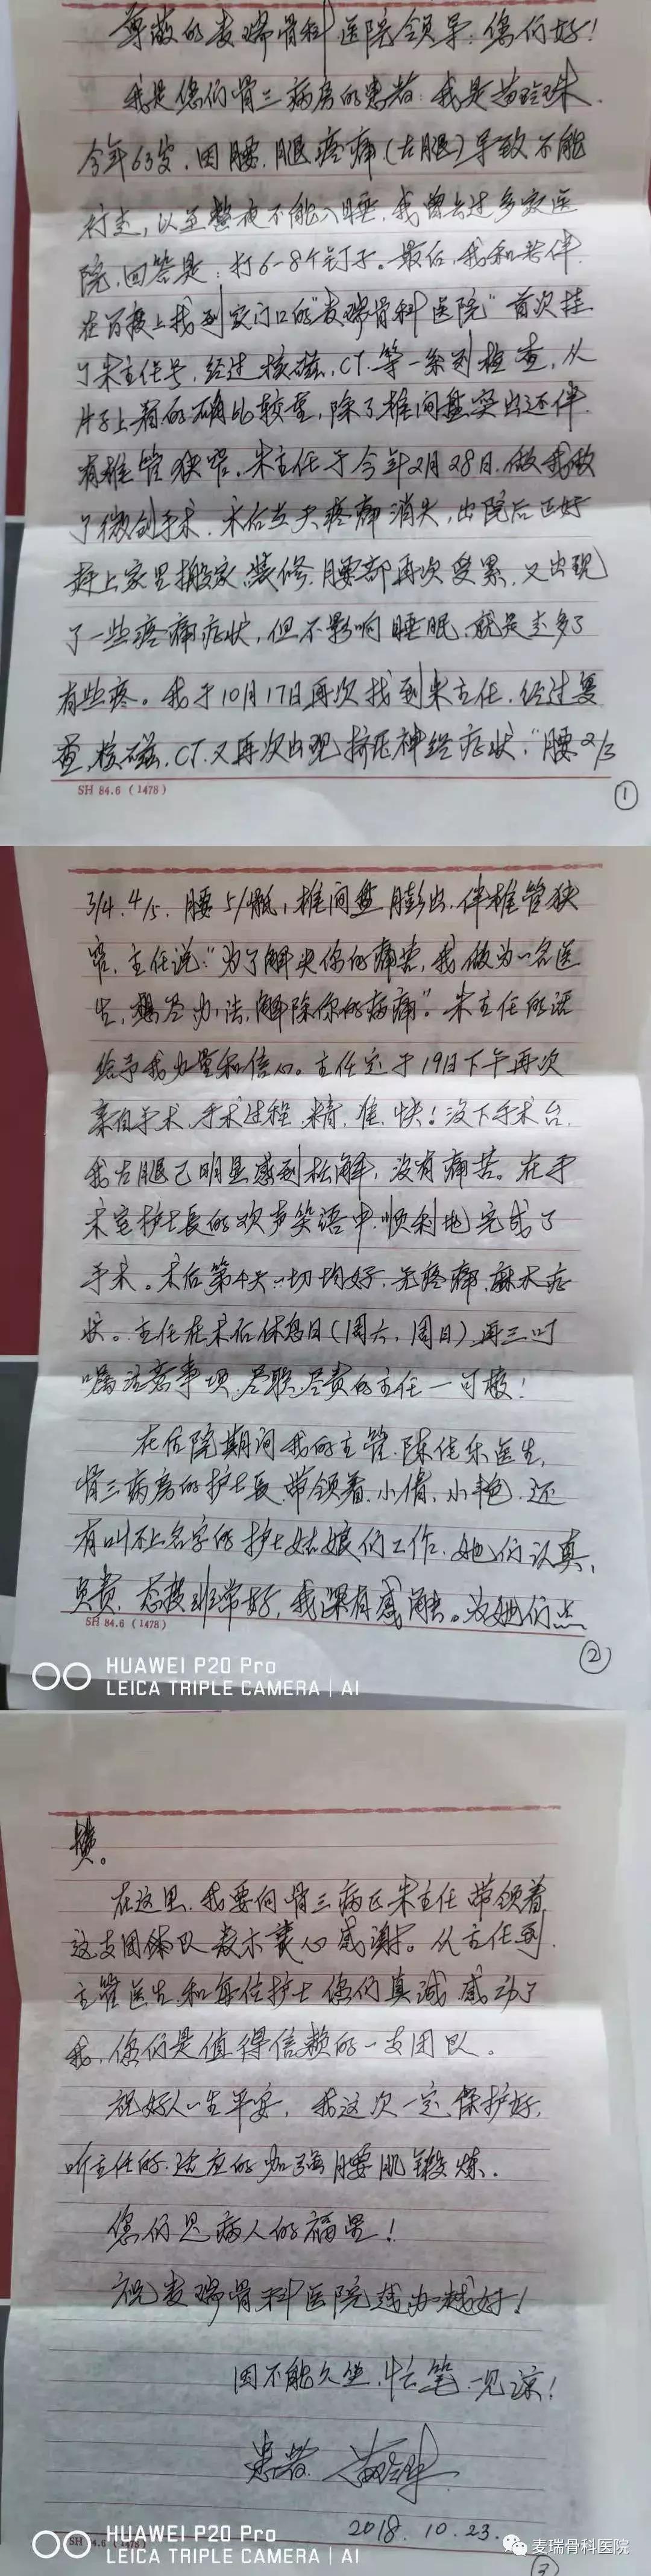 尊敬的麦瑞骨科医院领导：您们好！
我是您们骨三病房的患者：我是苗玲珠，
今年63岁，因腰、腿疼痛（左腿）导致不能
行走，以至整夜不能入睡，我曾去过多家医
院，回答是：打6-8个钉子。最后，我和老伴
在百度上找到家门口的“麦瑞骨科医院”首次挂
了宋主任号，经过核磁、CT.等一系列检查，从
片子上看的确比较重，除了椎间盘突出还伴
有椎管狭窄。宋主任于今年2月28日，做我做
了微创手术，术后当天疼痛消失，出院后正好
赶上家里搬家、装修，腰部再次受累，又出现
了一些疼痛症状，但不影响睡眠，就是走多了
有些疼。我于10月17日再次找到宋主任，经过复
查，核磁、CT.又再次出现挤压神经症状，“腰2/3
SH 84.6 (1478)
①
3/4、4/5、腰5/骶1椎间盘膨出，伴椎管狭
窄，主任说：“为了解决你的痛苦，我做为一名医
生，想尽办法，解除你的病痛”。宋主任的话
给予我力量和信心。主任定于19日下午再次
亲自手术，手术过程，精、准、快！没下手术台，
我左腿已明显感到松解，没有痛苦。在手
术室护士长的欢声笑语中，顺利地完成了
手术。术后第4天一切均好，无疼痛、麻木症
状。主任在术后休息日（周六、周日）再三叮
嘱注意事项，尽职尽责的主任一可敬！
在住院期间我的主管，陈佳乐医生，
骨三病房的护士长，带领着，小倩、小艳，还
有叫不上名字的护士姑娘们的工作，她们认真、
负责，态度非常好，我深有感触。为她们点
SH 84.6 (1478)
②
HUAWEI P20 Pro
LEICA TRIPLE CAMERA | AI
赞。
在这里，我要向骨三病区宋主任带领着
这支团体队表示衷心感谢。从主任到
主管医生和每位护士您们真诚感动了
我，您们是值得信赖的一支团队。
祝好人一生平安，我这次一定保护好，
听主任的，适应的加强腰肌锻炼。
您们是病人的福星！
祝麦瑞骨科医院越办越好！
因不能久坐，忙笔，见谅！
患者 苗玲珠
2018.10.23.
SH 84.6 (1478)
③
HUAWEI P20 Pro
LEICA TRIPLE CAMERA | AI
麦瑞骨科医院